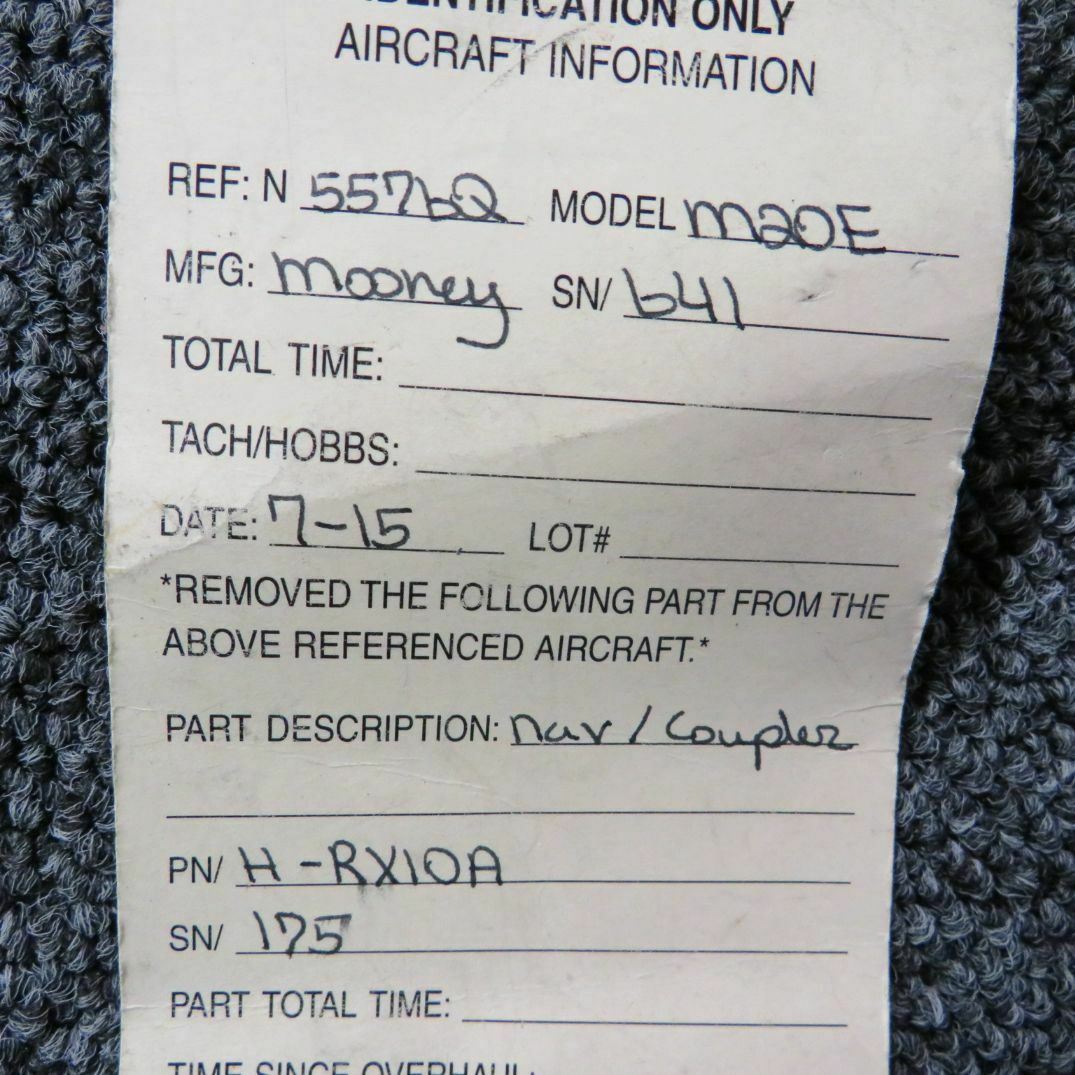 IDENTIFICATION ONLY
AIRCRAFT INFORMATION
REF: N 5576Q MODEL M20E
MFG: Mooney SN/ 641
TOTAL TIME:
TACH/HOBBS:
DATE: 7-15 LOT#
*REMOVED THE FOLLOWING PART FROM THE
ABOVE REFERENCED AIRCRAFT.*
PART DESCRIPTION: Nav / Coupler
PN/ H-RX10A
SN/ 175
PART TOTAL TIME:
TIME SINCE OVERHAUL: